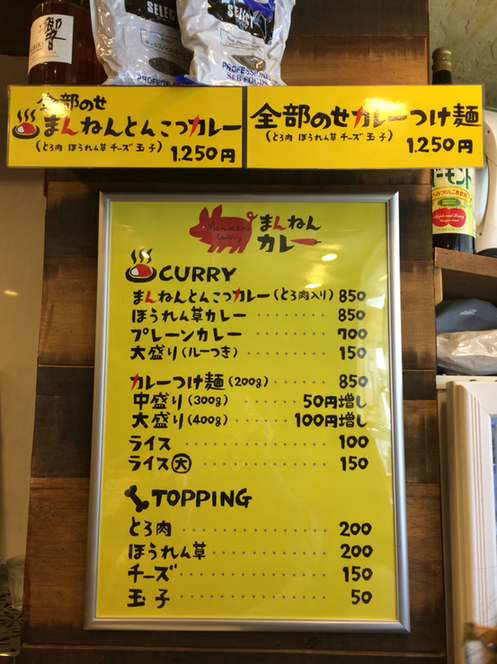 響
SELECT
SELECT
PROFESSIONAL
PROFESSIONAL
S&B FOODS
全部のせ
まんねんとんこつカレー
(とろ肉 ほうれん草 チーズ 玉子) 1.250円
全部のせカレーつけ麺
(とろ肉 ほうれん草 チーズ 玉子) 1.250円
まんねん
カレー
CURRY
まんねんとんこつカレー(とろ肉入り) 850
ほうれん草カレー ········ 850
プレーンカレー ········ 700
大盛り(ルーつき) ········ 150
カレーつけ麺(200g) ······ 850
中盛り(300g) ······ 50円増し
大盛り(400g) ····· 100円増し
ライス ············ 100
ライス大 ············ 150
TOPPING
とろ肉 ············ 200
ほうれん草 ·········· 200
チーズ ············ 150
玉子 ············ 50